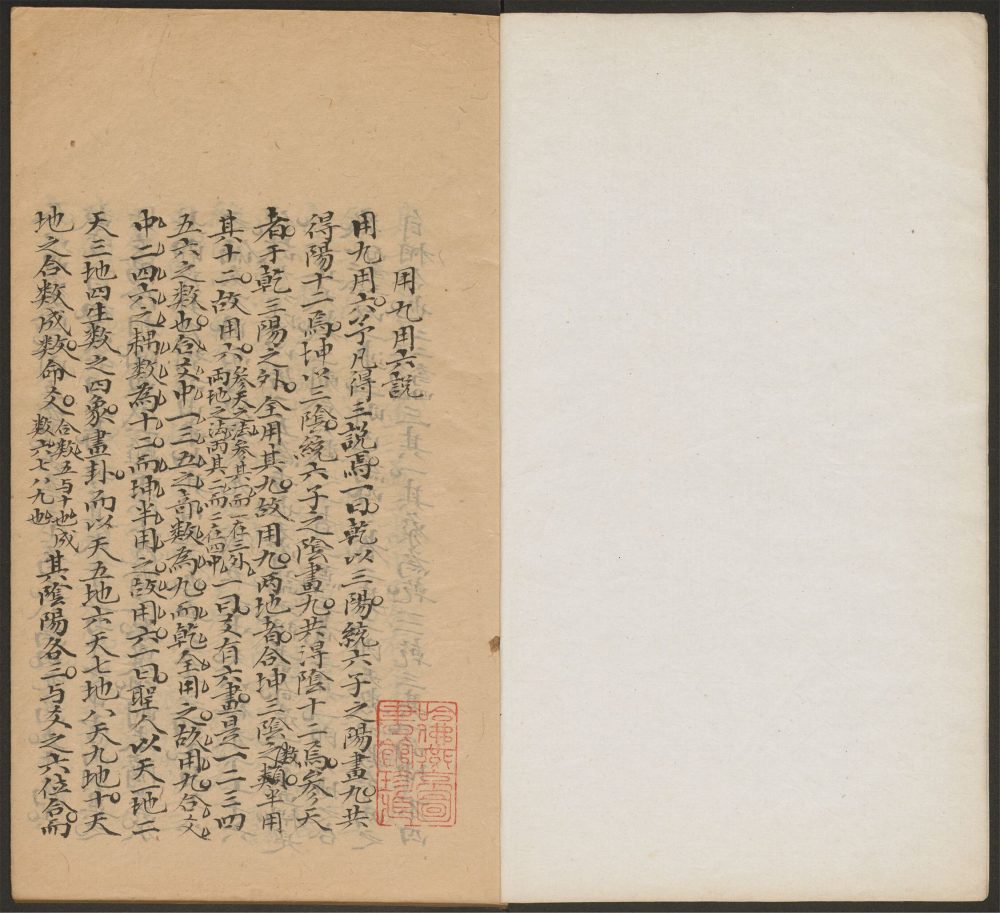 用九用六説
用九用六予凡得三說焉一曰乾以三陽統六子之陽畫九共
得陽十二焉坤以三陰統六子之陰畫九共得陰十二焉參天
者于乾三陽之外全用其九故用九兩地者合坤三陰之數類半用
其十二故用六參天之法參其一而一在三外兩地之法兩其二而二在四中一曰爻有六畫是一二三四
五六之數也合爻中一三五之竒數為九而乾全用之故用九合爻
中二四六之耦數為十二而坤半用之故用六一曰聖人以天一地二
天三地四生數之四象畫卦而以天五地六天七地八天九地十天
地之合數成數命爻合數五与十也成數六七八九也其陰陽各三与爻之六位合而
哈佛燕京圖書館珍藏